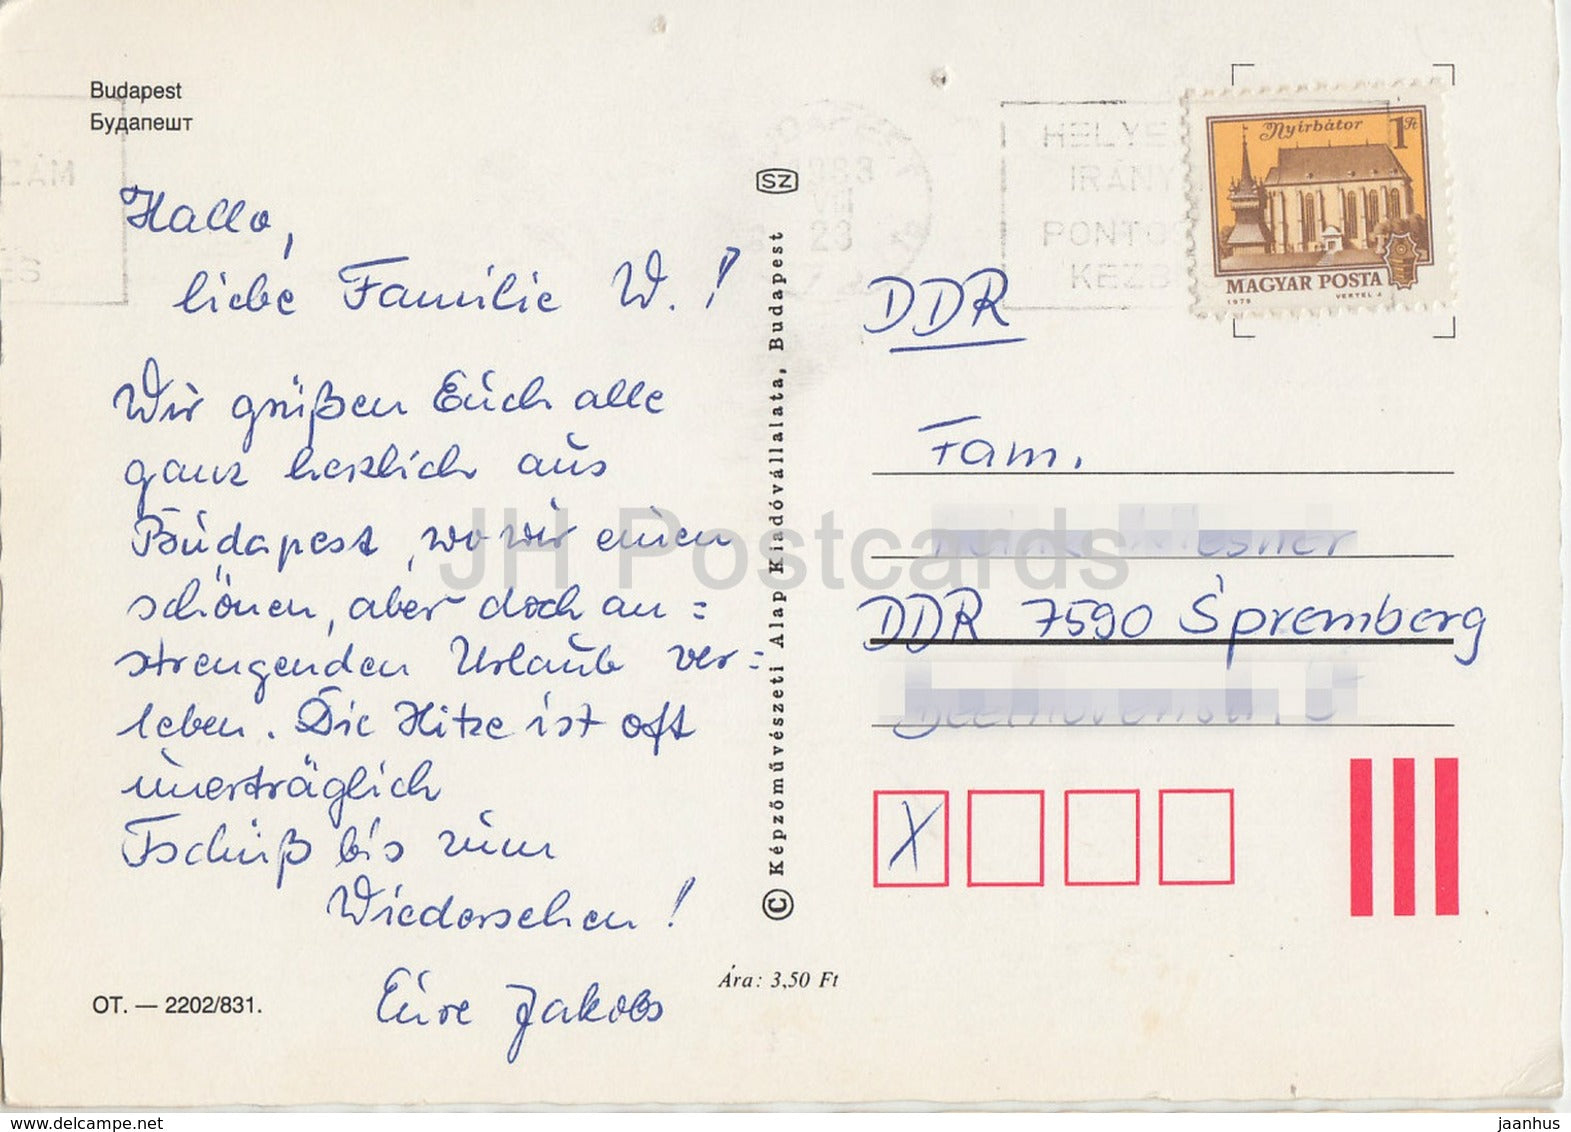 Budapest
Будапешт
Hallo,
liebe Familie W.!
Wir grüßen Euch alle
ganz herzlich aus
Budapest, wo wir einen
schönen, aber doch an=
strengenden Urlaub ver=
leben. Die Hitze ist oft
unerträglich
Tschüß bis zum
Wiedersehen!
Eure Jakobs
OT. — 2202/831.
Ára: 3,50 Ft
SZ
© Képzőművészeti Alap Kiadóvállalata, Budapest
1983
VII
23
HELYE
IRÁNY
PONTO
KEZB
Nyírbátor 1 Ft
MAGYAR POSTA
1979 VERTEL J.
DDR
Fam.
DDR 7590 Spremberg
X
JH Postcards
www.delcampe.net
jaanhus